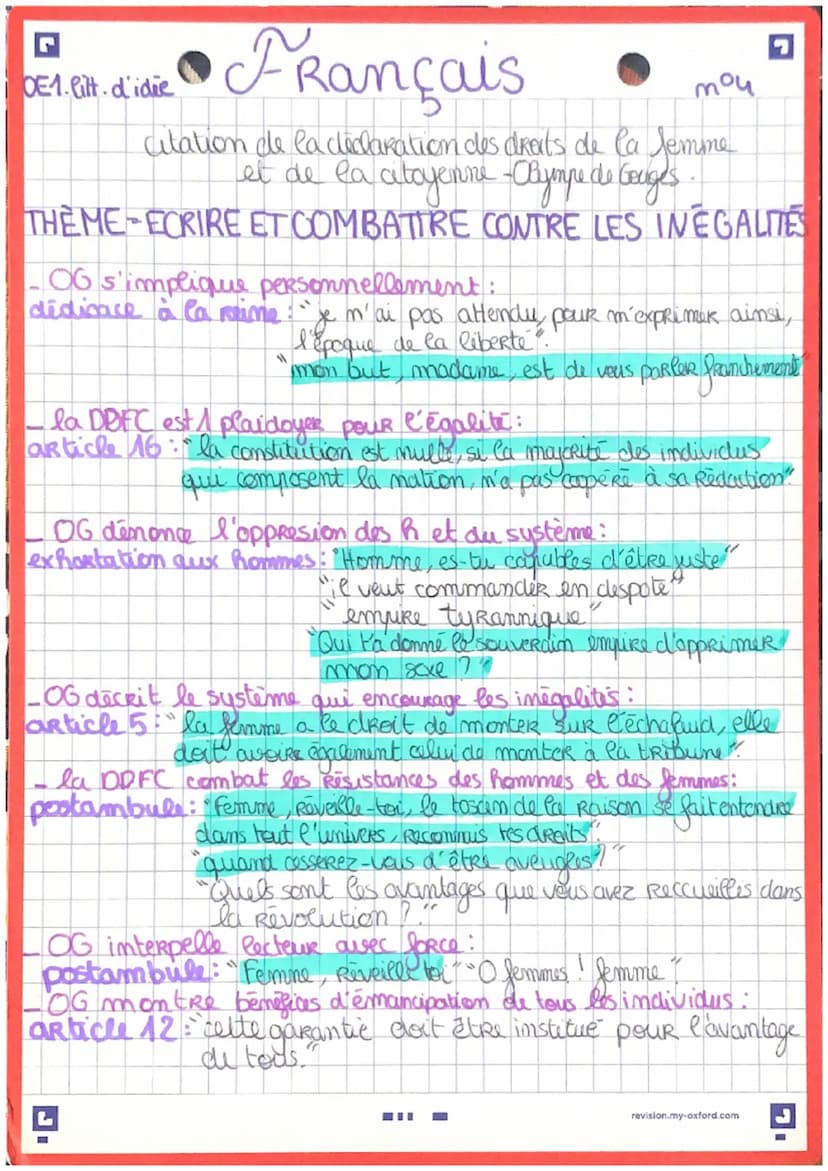 OE1. litt. d'idée Français n°4
citation de la déclaration des droits de la femme
et de la citoyenne - Olympe de Gouges.
THÈME - ECRIRE ET COMBATTRE CONTRE LES INÉGALITÉS
- OG s'implique personnellement :
dédicace à la reine : "je n'ai pas attendu, pour m'exprimer ainsi,
l'époque de la liberté".
"mon but, madame, est de vous parler franchement"
- la DDFC est 1 plaidoyer pour l'égalité :
article 16 : "la constitution est nulle, si la majorité des individus
qui composent la nation, n'a pas coopéré à sa Rédaction"
- OG dénonce l'oppresion des h et du système :
exhortation aux hommes : "Homme, es-tu capables d'être juste"
"il veut commander en despote"
"empire tyrannique"
"Qui t'a donné le souverain empire d'opprimer
mon sexe ?"
- OG décrit le système qui encourage les inégalités :
article 5 : "la femme a le droit de monter sur l'échafaud, elle
doit avoire également celui de monter à la tribune".
- la DDFC combat les résistances des hommes et des femmes :
postambule : "Femme, Réveille-toi, le toscin de la Raison se fait entendre
dans tout l'univers, reconnus tes droits".
"quand cesserez-vous d'être aveugles ?"
"Quels sont les avantages que vous avez reccueilles dans
la Révolution ?"
- OG interpelle lecteur avec force :
postambule : "Femme, Réveille toi" "O femmes ! femme"
- OG montre bénéfices d'émancipation de tous les individus :
article 12 : "cette garantie doit être institué pour l'avantage
de tous."
revision.my-oxford.com